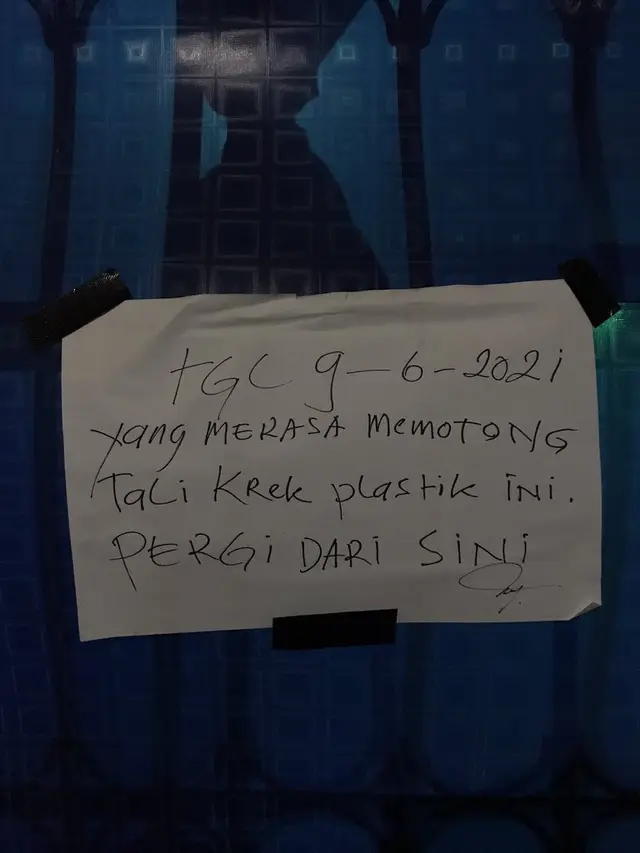 tGL 9-6-2021
yang MERASA MeMOTONG
TALi KRek plastik iNi.
PERGi DARi SiNi